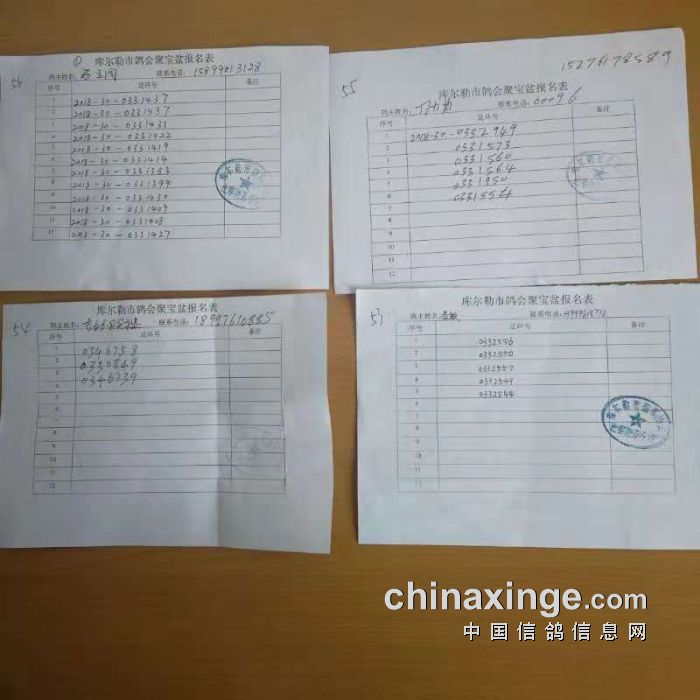 56
① 库尔勒市鸽会聚宝盆报名表
鸽主姓名: 联系电话: 15899013128
序号 足环号 备注
1 2018-30-0331437
2 2018-30-0331437
3 2018-30-0331431
4 2018-30-0331422
5 2018-30-0331419
6 2018-30-0331414
7 2018-30-0331383
8 2018-30-0331399
9 2018-30-0331430
10 2018-30-0331409
11 2018-30-0331408
12 2018-30-0331427
55
15276178589
库尔勒市鸽会聚宝盆报名表
鸽主姓名: 联系电话: 00096
序号 足环号 备注
1 2018-30-0332949
2 0331573
3 0331560
4 0331564
5 0331950
6 0331554
7
8
9
10
11
12
54
库尔勒市鸽会聚宝盆报名表
鸽主姓名: 联系电话: 18997610885
序号 足环号 备注
1 0346758
2 0330849
3 0346739
4
5
6
7
8
9
10
11
12
53
库尔勒市鸽会聚宝盆报名表
鸽主姓名: 联系电话:
序号 足环号 备注
1 0332536
2 0332550
3 0332557
4 0332549
5 0332544
6
7
8
9
10
11
12
chinaxinge.com
中国信鸽信息网